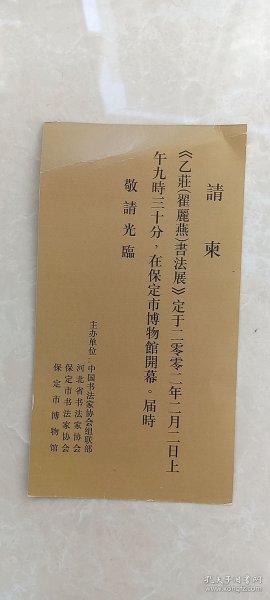 請柬
《乙莊(翟麗燕)書法展》定于二零零二年二月二日上
午九時三十分，在保定市博物館開幕。屆時
敬請光臨
主办单位：中国书法家协会组联部
河北省书法家协会
保定市书法家协会
保定市博物馆